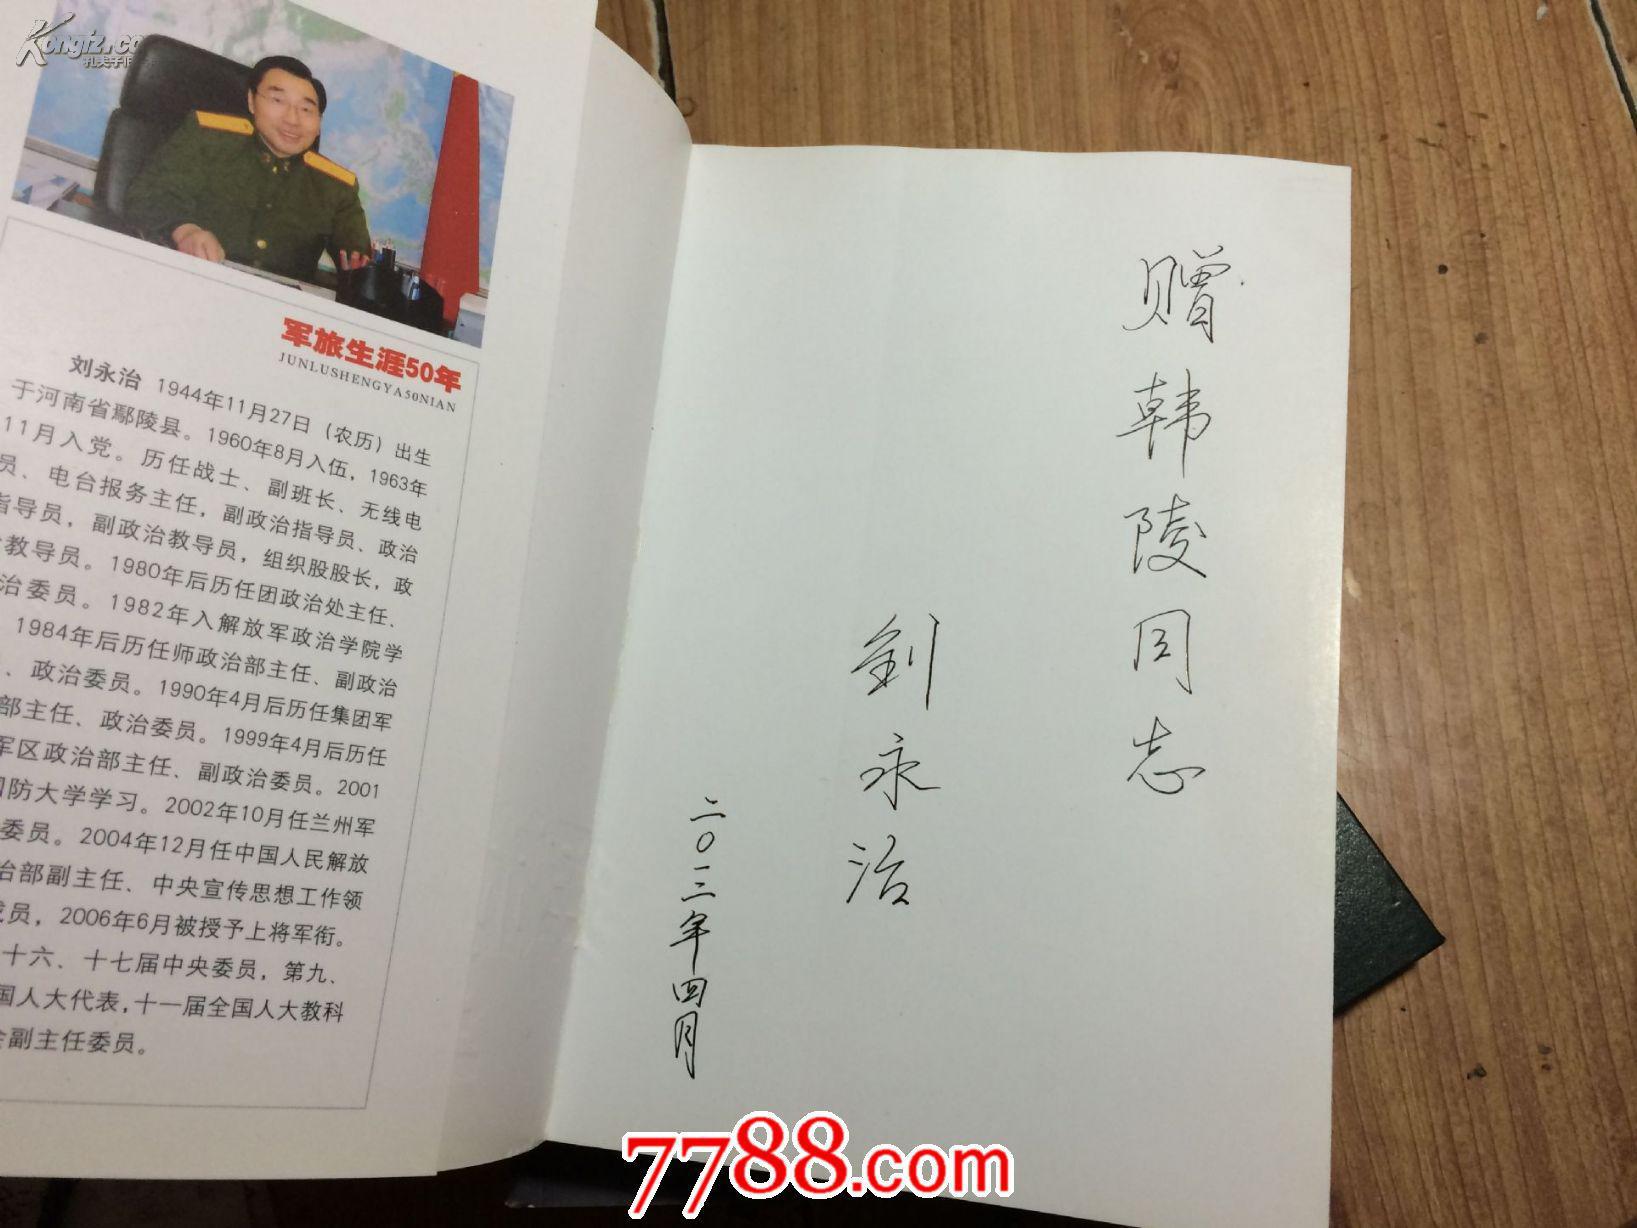 Kongfz.co
孔夫子旧
军旅生涯50年
JUNLUSHENGYA50NIAN
刘永治 1944年11月27日（农历）出生
于河南省鄢陵县。1960年8月入伍，1963年
11月入党。历任战士、副班长、无线电
员、电台报务主任，副政治指导员、政治
指导员，副政治教导员，组织股股长，政
治教导员。1980年后历任团政治处主任、
治委员。1982年入解放军政治学院学
1984年后历任师政治部主任、副政治
、政治委员。1990年4月后历任集团军
部主任、政治委员。1999年4月后历任
军区政治部主任、副政治委员。2001
国防大学学习。2002年10月任兰州军
委员。2004年12月任中国人民解放
治部副主任、中央宣传思想工作领
成员，2006年6月被授予上将军衔。
十六、十七届中央委员，第九、
国人大代表，十一届全国人大教科
会副主任委员。
赠韩陵同志
刘永治
二〇一二年四月
7788.com